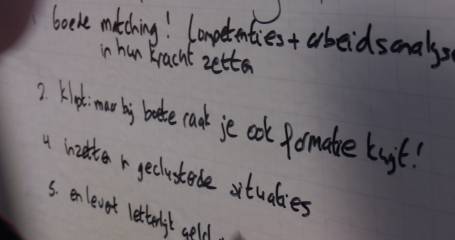 goede matching! Competenties + arbeidsanalyse
in hun kracht zetten
3. klopt: maar bij boete raak je ook formatie kwijt!
4 inzetten in geclusterde situaties
5. en levert letterlijk geld